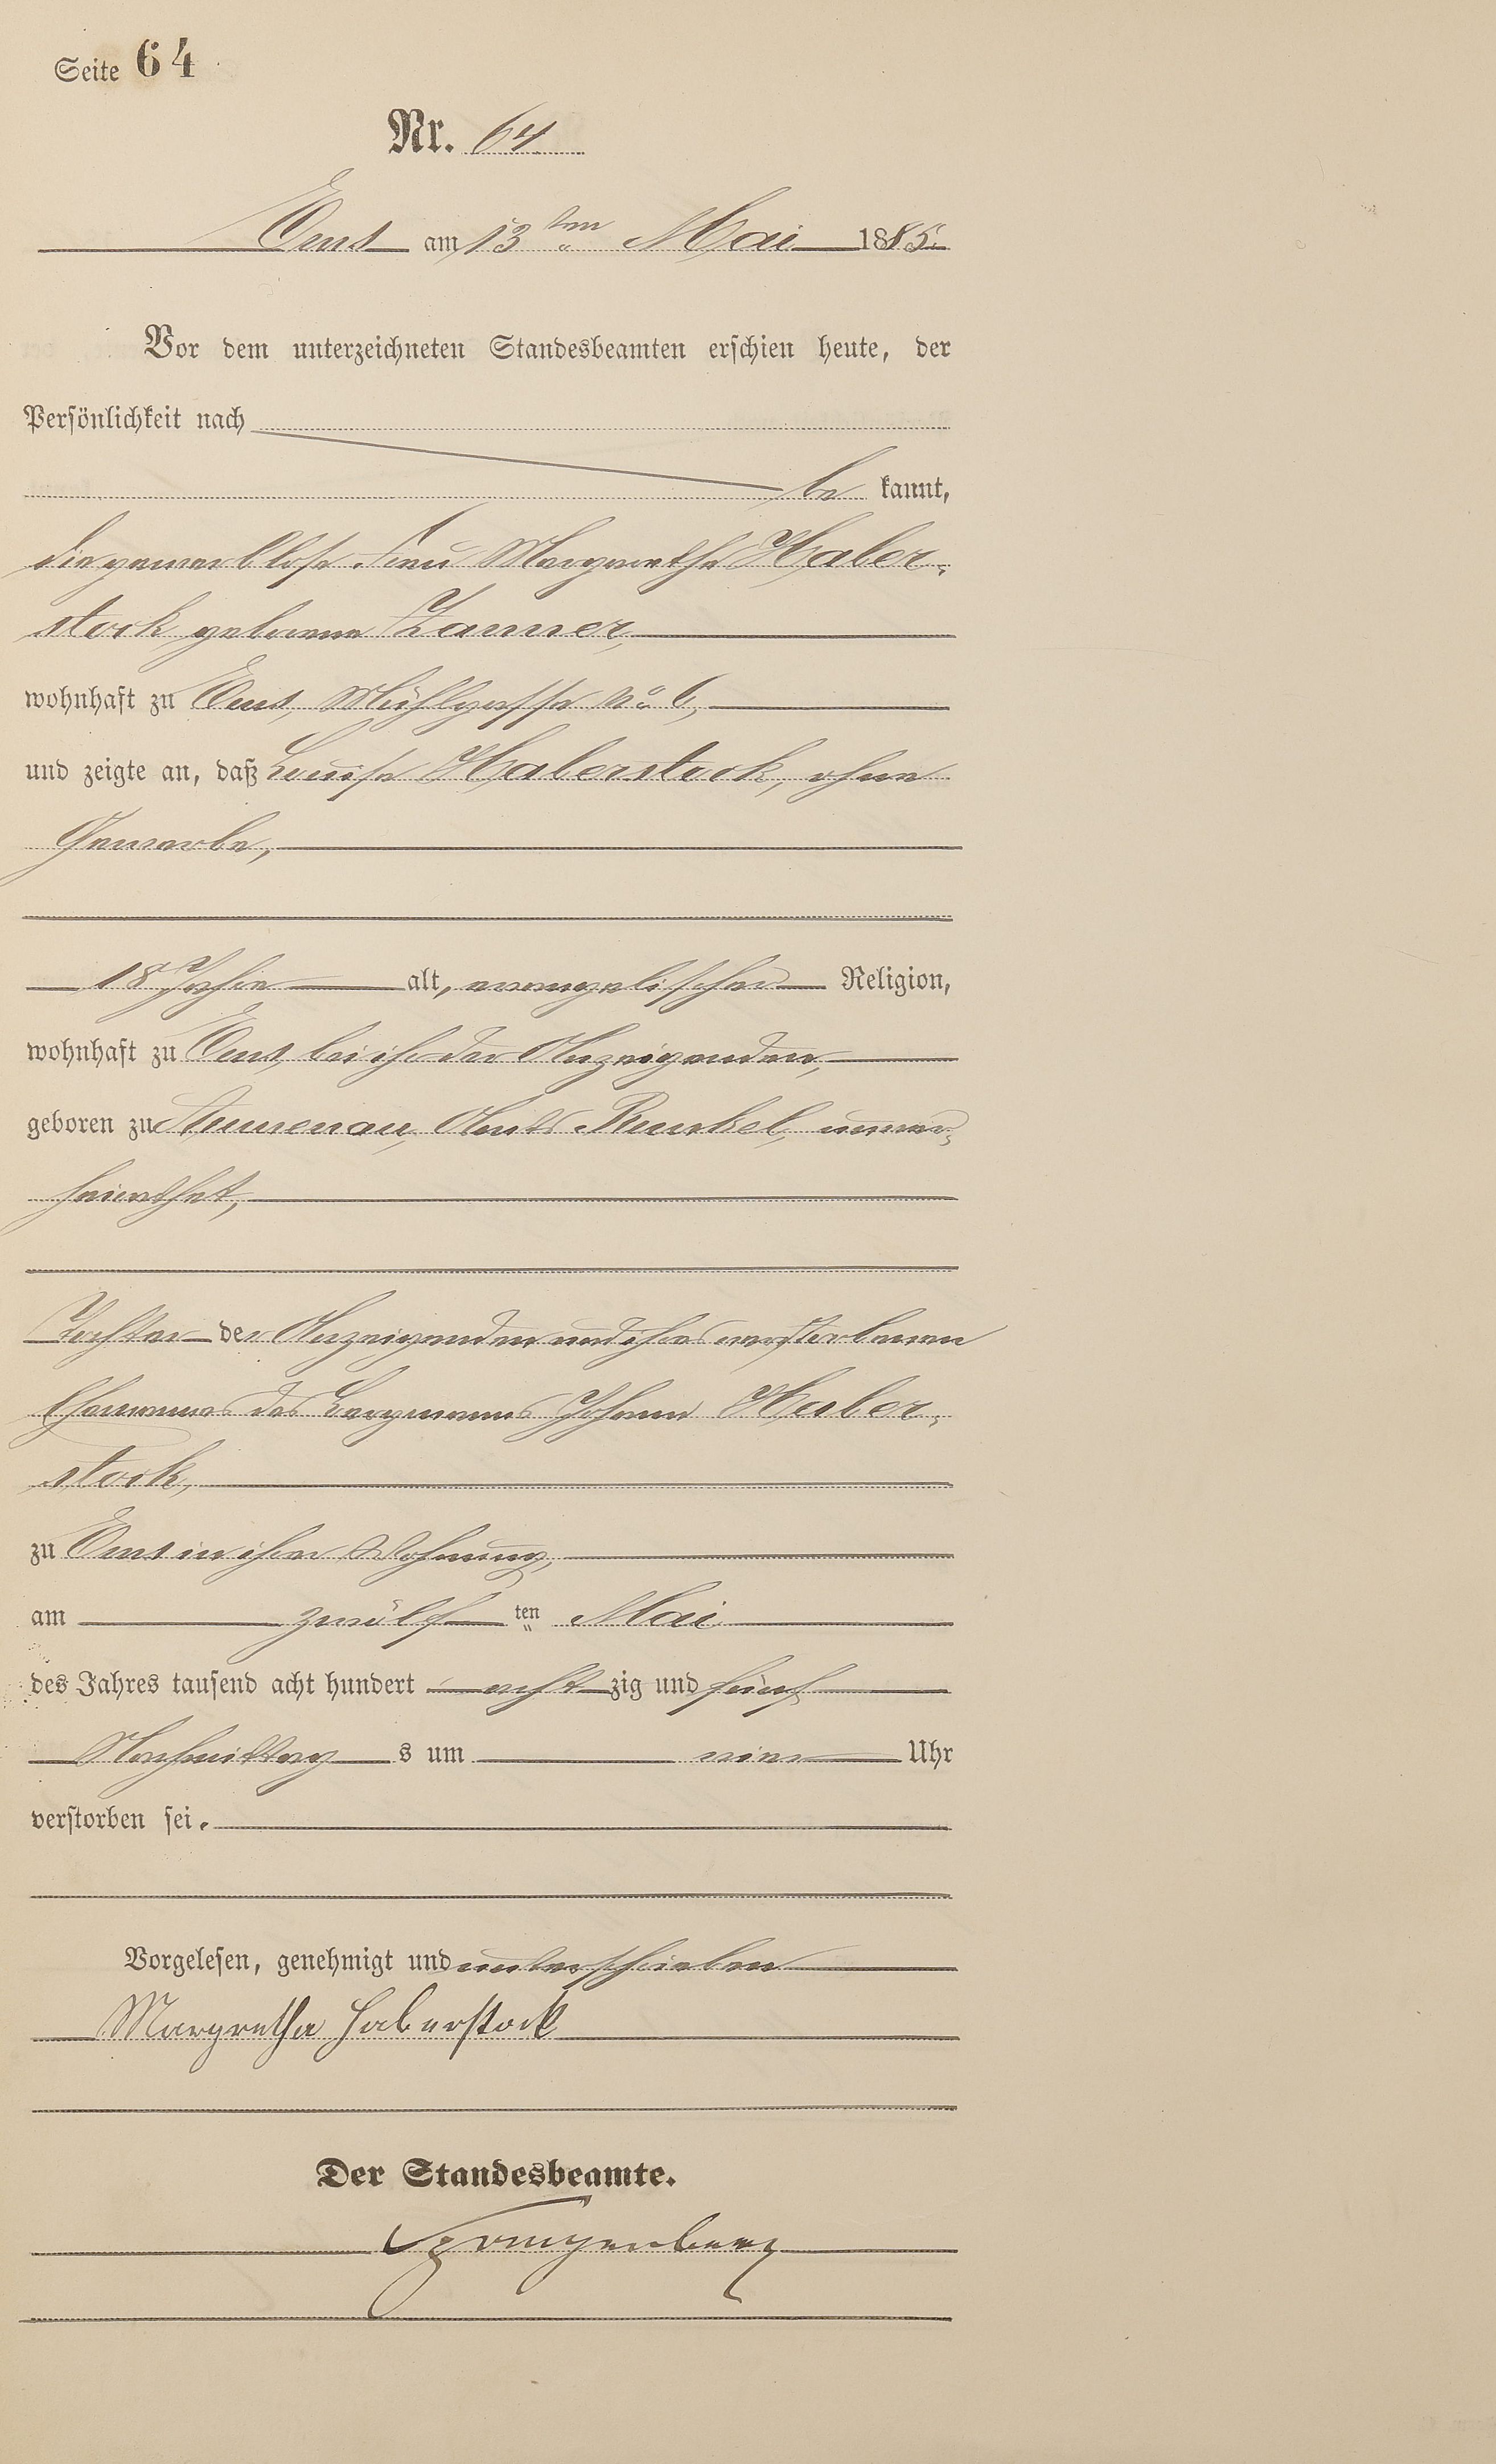 Seite 64
Nr. 64
Ems am 13ten Mai 1885.
Vor dem unterzeichneten Standesbeamten erschien heute, der
Persönlichkeit nach
be kannt,
die gewerblose Frau Margarethe Haber-
stock geborene Zanner,
wohnhaft zu Ems, Mühlgasse No 6,
und zeigte an, daß Louise Haberstock, ohne
Gewerbe,
18 Jahre alt, evangelischer Religion,
wohnhaft zu Ems, bei ihr der Anzeigenden,
geboren zu Aumenau, Amts Runkel, unver-
heirathet,
Tochter der Anzeigenden und ihres verstorbenen
Ehemannes des Bergmanns Johann Haber-
stock,
zu Ems in ihrer Wohnung,
am zwölf ten Mai
des Jahres tausend acht hundert acht zig und fünf
Nachmittag s um vier Uhr
verstorben sei.
Vorgelesen, genehmigt und unterschrieben
Margretha Haberstock
Der Standesbeamte.
Spangenberg